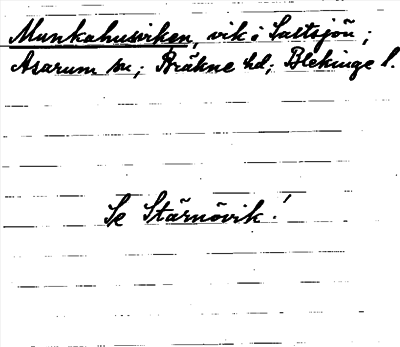 Munkahusviken, vik i Saltsjön;
Asarum sn; Bräkne hd; Blekinge l.
Se Stärnövik!